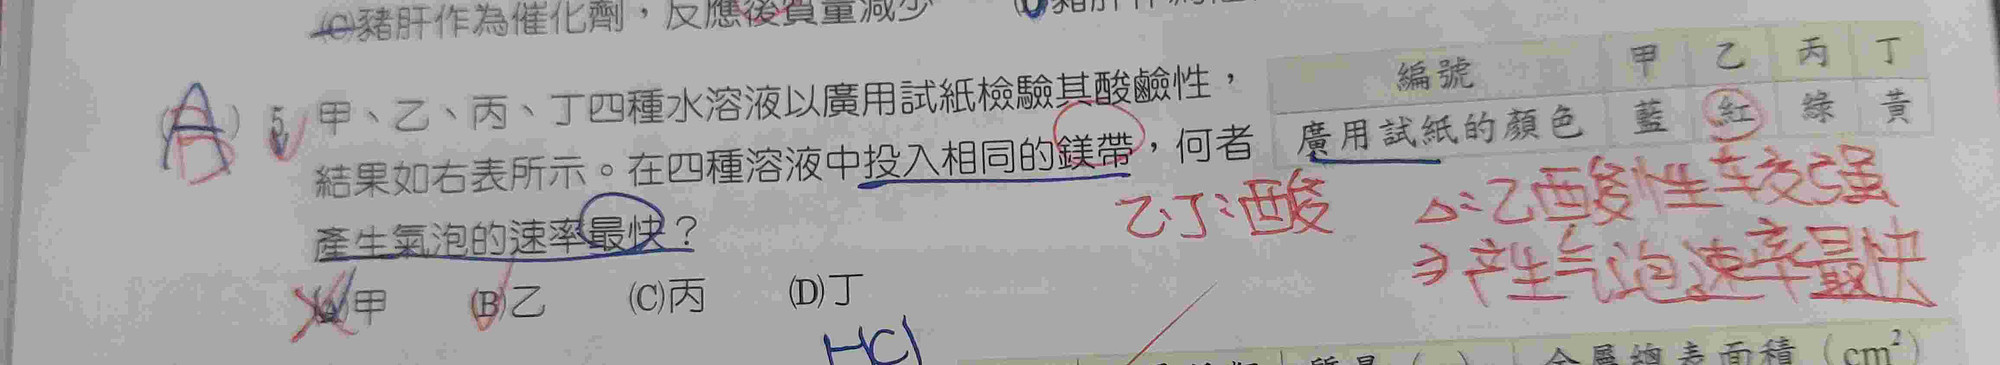 (C)豬肝作為催化劑，反應後質量減少
A
5. 甲、乙、丙、丁四種水溶液以廣用試紙檢驗其酸鹼性，
結果如右表所示。在四種溶液中投入相同的鎂帶，何者
產生氣泡的速率最快？
(A)甲 (B)乙 (C)丙 (D)丁
編號 甲 乙 丙 丁
廣用試紙的顏色 藍 紅 綠 黃
乙丁：酸
∴乙酸性較强
⇒产生气泡速率最快
HCl
金屬總表面積（cm²）